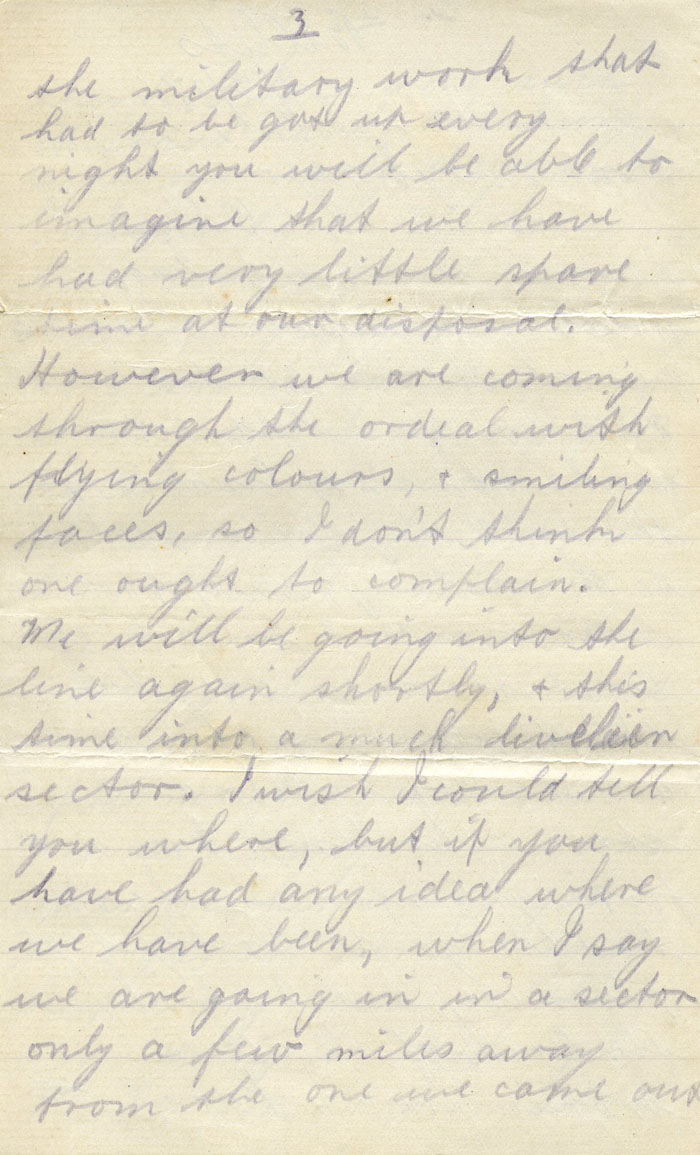 3
the military work that
had to be got up every
night you will be able to
imagine that we have
had very little spare
time at our disposal.
However we are coming
through the ordeal with
flying colours, & smiling
faces, so I don't think
one ought to complain.
We will be going into the
line again shortly, & this
time into a much livelier
sector. I wish I could tell
you where, but if you
have had any idea where
we have been, when I say
we are going in in a sector
only a few miles away
from the one we came out